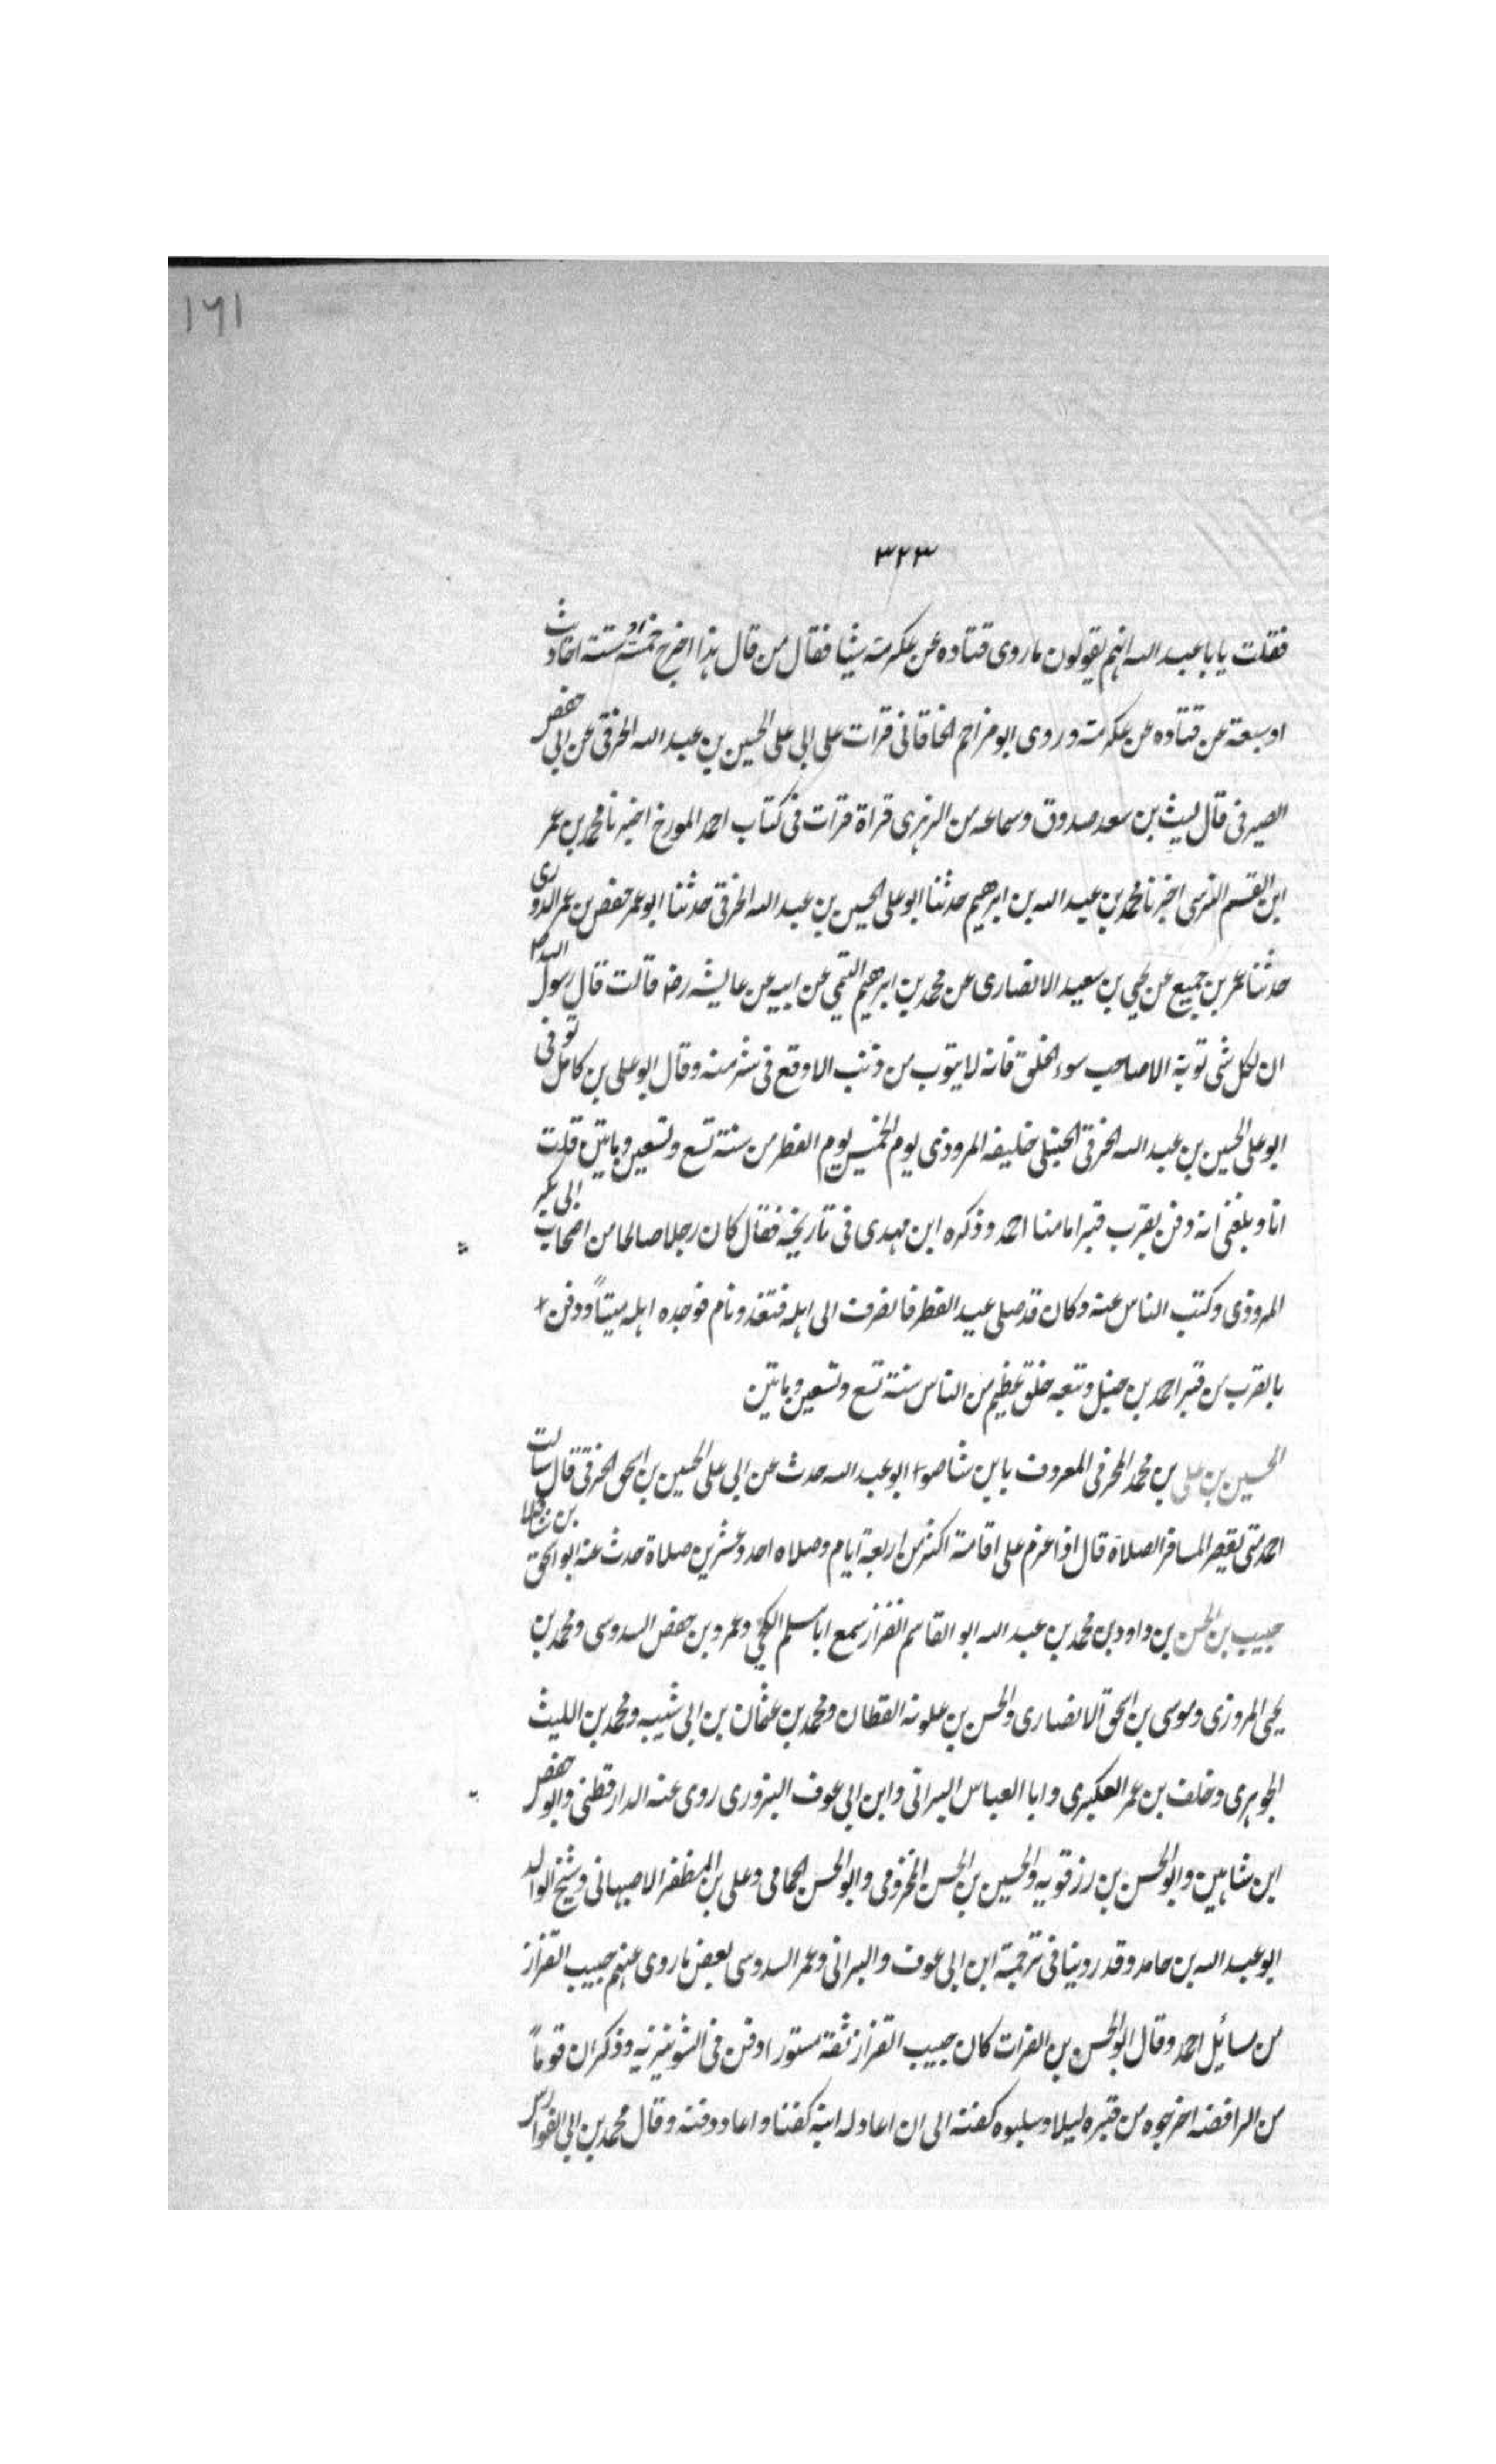 ١٦١
٣٢٣
فقلت يا با عبد الله انهم يقولون ما روى قتاده عن عكرمة شيئا فقال من قال هذا اخرج خمسة او ستة احاديث
او سبعة عن قتاده عن عكرمة وروى ابو مزاحم الخاقانى قرات على ابى على الحسين بن عبد الله الخرقى عن ابى حفص
الصيرفى قال ليث بن سعد صدوق وسماعه من الزهرى قراة قرات فى كتاب احمد المورخ اخبرنا محمد بن عمر
ابن القسم النرسى اخبرنا محمد بن عبد الله بن ابرهيم حدثنا ابو على الحسين بن عبد الله الخرقى حدثنا ابو عمر حفص بن عمر الدورى
حدثنا عمر بن جميع عن يحيى بن سعيد الانصارى عن محمد بن ابرهيم التيمى عن ابيه عن عايشه رضه قالت قال رسول الله
ان لكل شى توبة الا صاحب سوء الخلق فانه لا يتوب من ذنب الا وقع فى شر منه وقال ابو على بن كامل توفى
ابو على الحسين بن عبد الله الخرقى الحنبلى خليفه المروذى يوم الخميس يوم الفطر من سنة تسع وتسعين وماتين قلت
انا وبلغنى انه دفن بقرب قبر امامنا احمد وذكره ابن مهدى فى تاريخه فقال كان رجلا صالحا من اصحاب ابى بكر
المروذى وكتب الناس عنه وكان قد صلى عيد الفطر فانصرف الى اهله فتغد ونام فوجده اهله ميتاً ودفن
بالقرب من قبر احمد بن حنبل وتبعه خلق عظيم من الناس سنة تسع وتسعين وماتين
الحسين بن على بن محمد المخرمى المعروف بابن شاصوا ابو عبد الله حدث عن ابى على الحسين بن اسحق الخرقى قال سالت
احمد متى يقصر المسافر الصلاة قال اذا عزم على اقامة اكثر من اربعة ايام وصلاه احد وعشرين صلاة حدث عنه ابو اسحق بن شاقلا
حبيب بن الحسن بن داود بن محمد بن عبد الله ابو القاسم القزاز سمع ابا مسلم الكجى وعمر وبن حفص السدوسى ومحمد بن
يحيى المروزى وموسى بن اسحق الانصارى والحسن بن علويه القطان ومحمد بن عثمان بن ابى شيبه ومحمد بن الليث
الجوهرى وخلف بن عمر العكبرى وابا العباس البراثى وابن ابى عوف البزورى روى عنه الدارقطنى وابو حفص
ابن شاهين وابو الحسن بن رزقويه والحسين بن الحسن المخزومى وابو الحسن الحمامى وعلى بن المظفر الاصبهانى وشيخ الوالد
ابو عبد الله بن حامد وقد روينا فى ترجمة ابن ابى عوف والبراثى وعمر السدوسى بعض ما روى عنهم حبيب القزاز
من مسائيل احمد وقال ابو الحسن بن الفرات كان حبيب القزاز ثقة مستورا دفن فى الشونيزيه وذكر ان قوماً
من الرافضه اخرجوه من قبره ليلا وسلبوه كفنه الى ان اعاد له ابنه كفنا واعاد دفنه وقال محمد بن ابى الفوارس